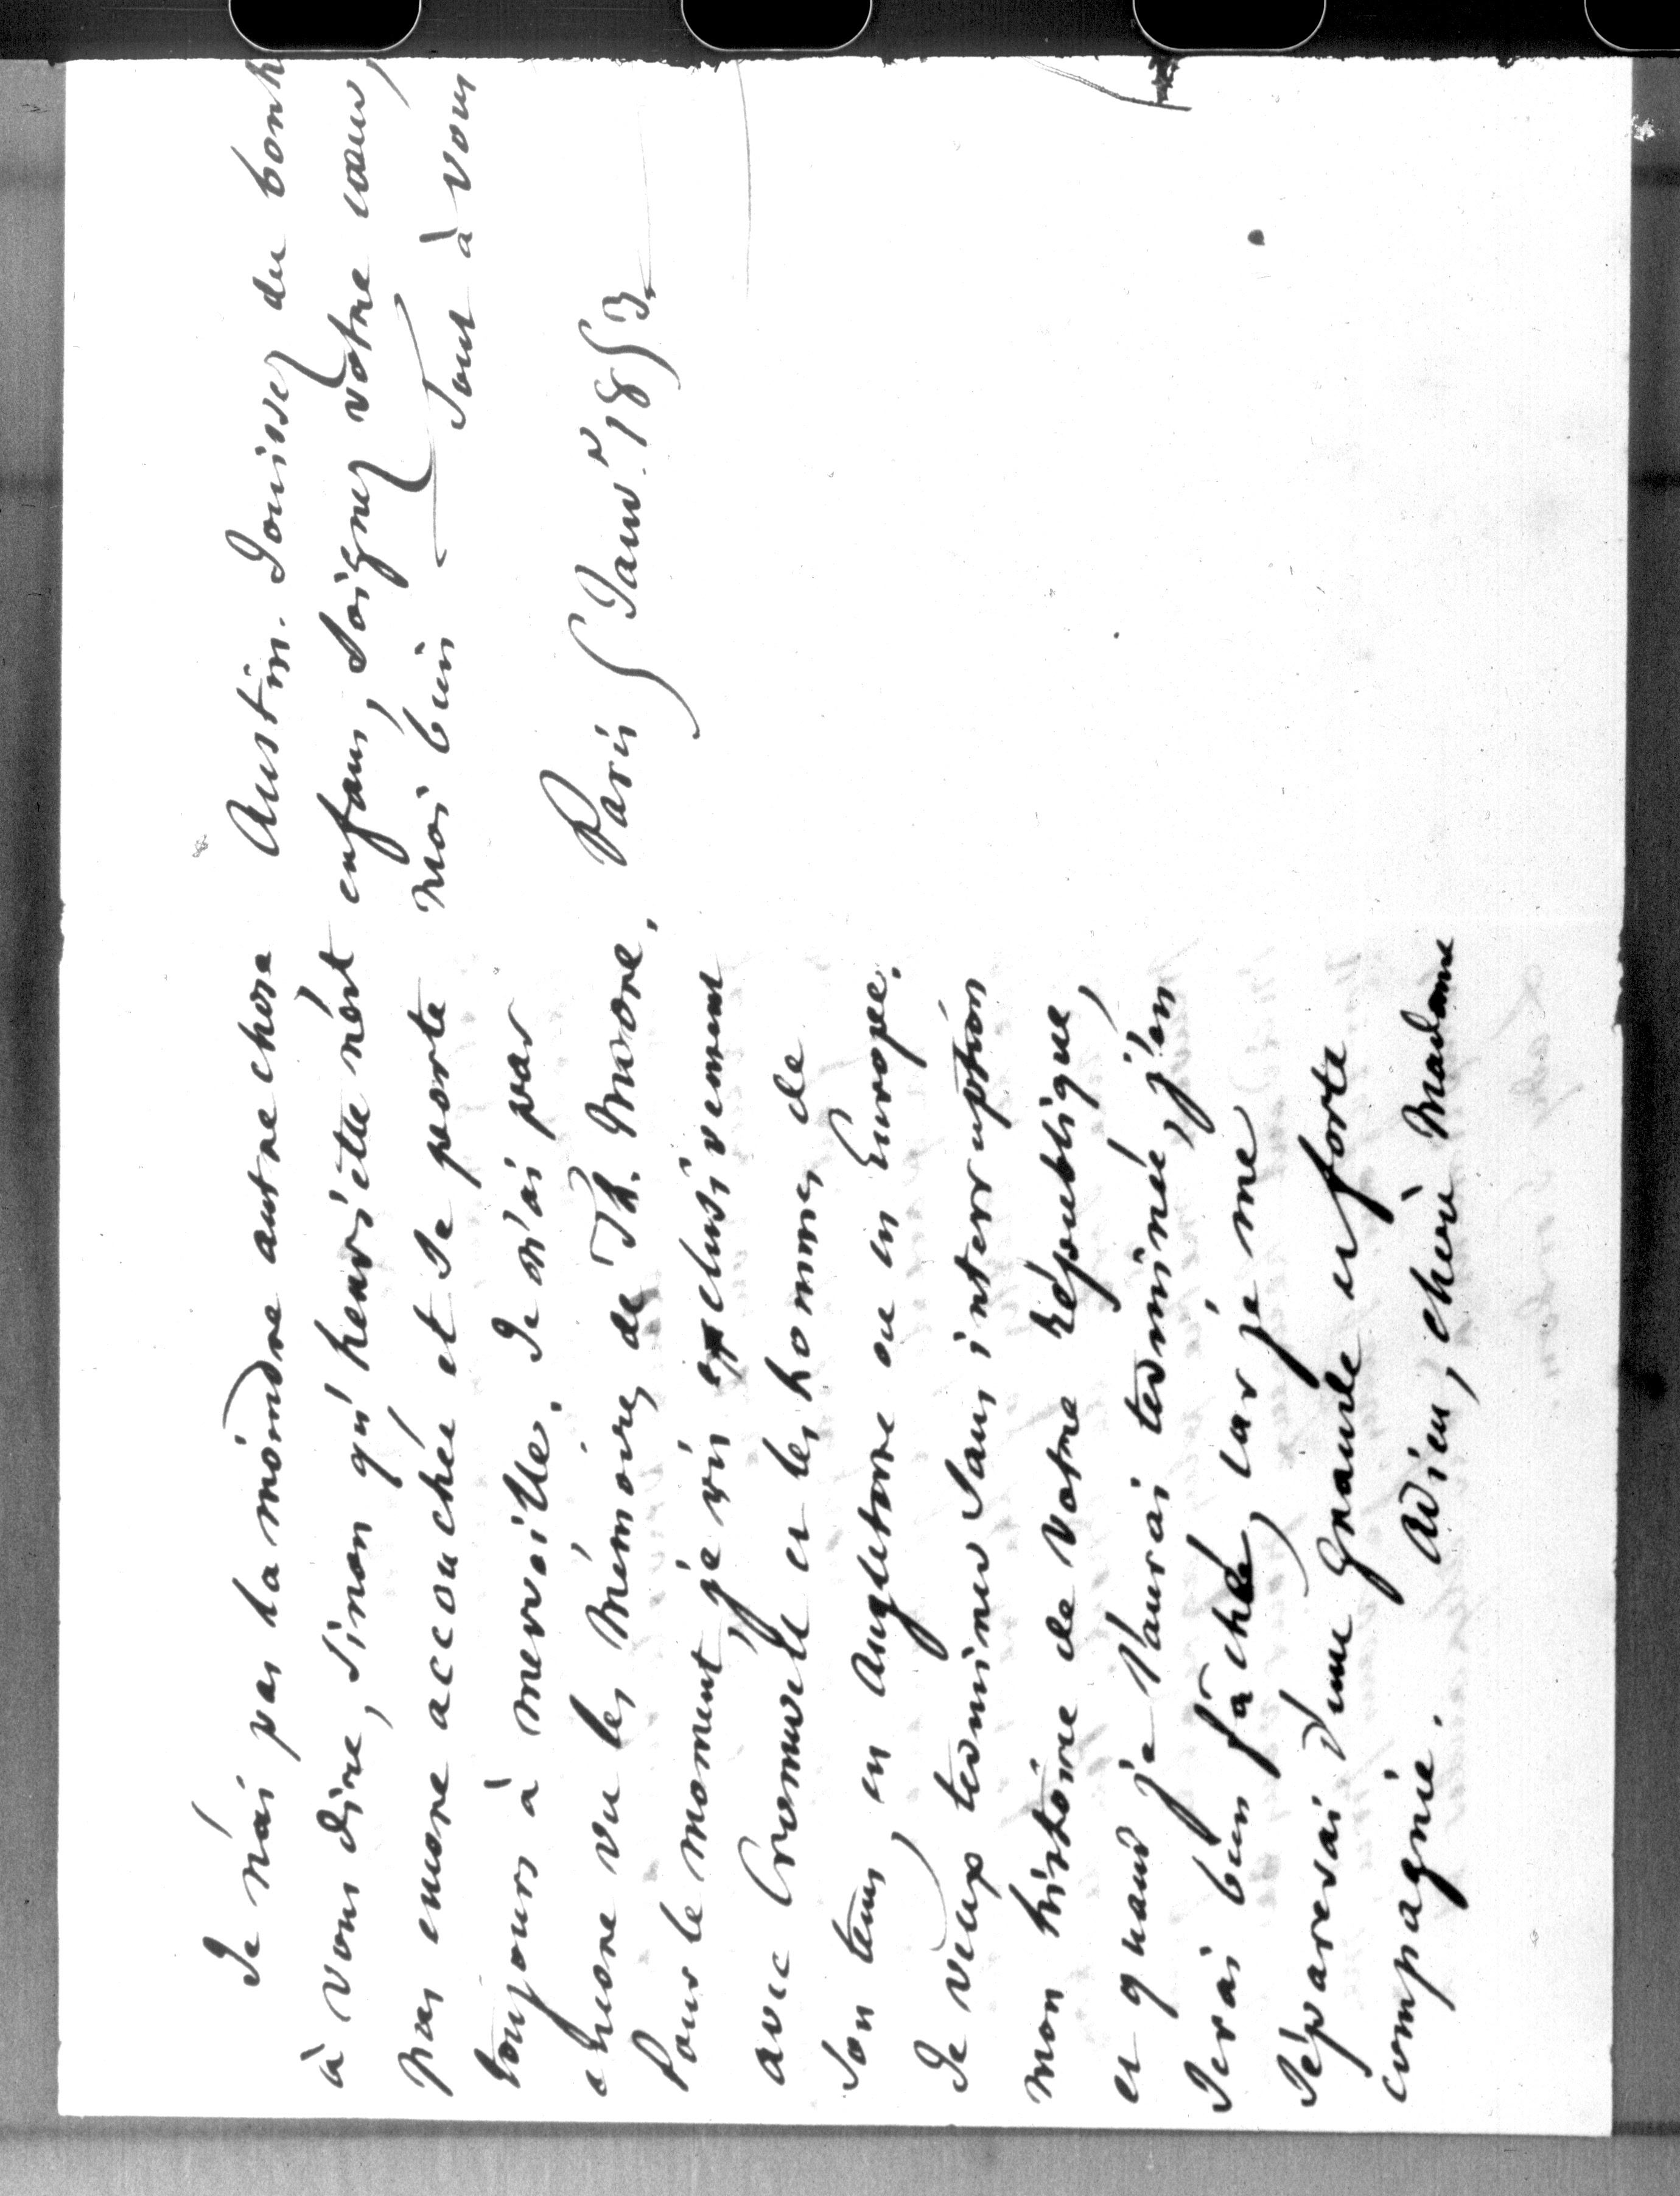 Je n'ai pas la moindre autre chose
à vous dire, sinon qu'henriette n'est
pas encore accouchée et se porte
toujours à merveille. Je n'ai pas
encore vu les Mémoires de Th. Moore.
Pour le moment, je vis exclusivement
avec Cromwell et les hommes de
son tems, en Angleterre ou en Europe.
Je veux terminer sans interruption
mon histoire de votre République,
et quand je l'aurai terminée, j'en
serai bien fâché, car je me
séparerai d'une grande et forte
compagnie. Adieu, chère Madame
Austin. Jouissez du bonh
enfans, soignez votre cœur,
moi bien – Tout à vous
Paris 5 Janvr. 1853.